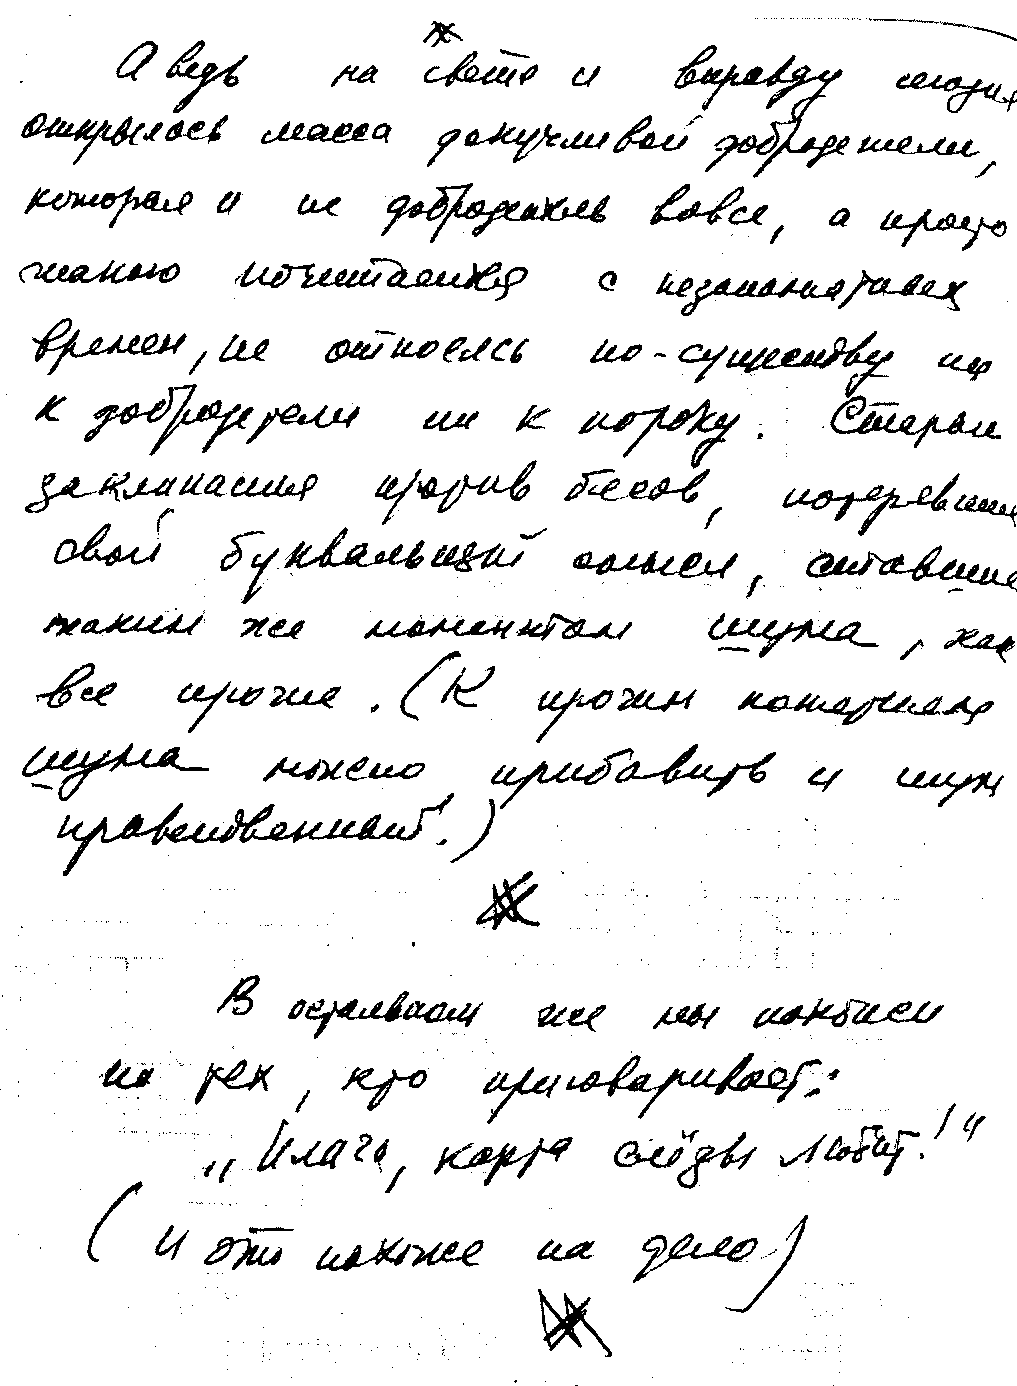 А ведь на свете и вправду
открылось масса докучливой добродетели,
которая и не добродетель вовсе, а просто
такою почитается с незапамятных
времен, не относясь по-существу ни
к добродетели ни к пороку. Старые
заклинания против бесов, потерявшие
свой буквальный смысл, ставшие
таким же моментом шума, как
все прочие. (К прочим
шума можно прибавить и шум
нравственный.)
В остальном же мы похожи
на тех, кто приговаривает:
„Плачь, карта слёзы любит!"
(И это похоже на дело)